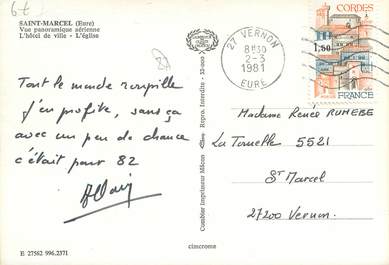 6€
SAINT-MARCEL (Eure)
Vue panoramique aérienne
L'hôtel de ville - L'église
27
27 VERNON
8H30
2-3
1981
EURE
CORDES
1,60
FRANCE
Tout le monde roupille
j'en profite, sans ça
avec un peu de chance
c'était pour 82
Alain
Combier Imprimeur Mâcon
Repro. Interdite - 35-000
Madame Renée RUHEBE
La Tourelle 5521
St Marcel
27200 Vernon.
E 27562 996.2371
cimcrome